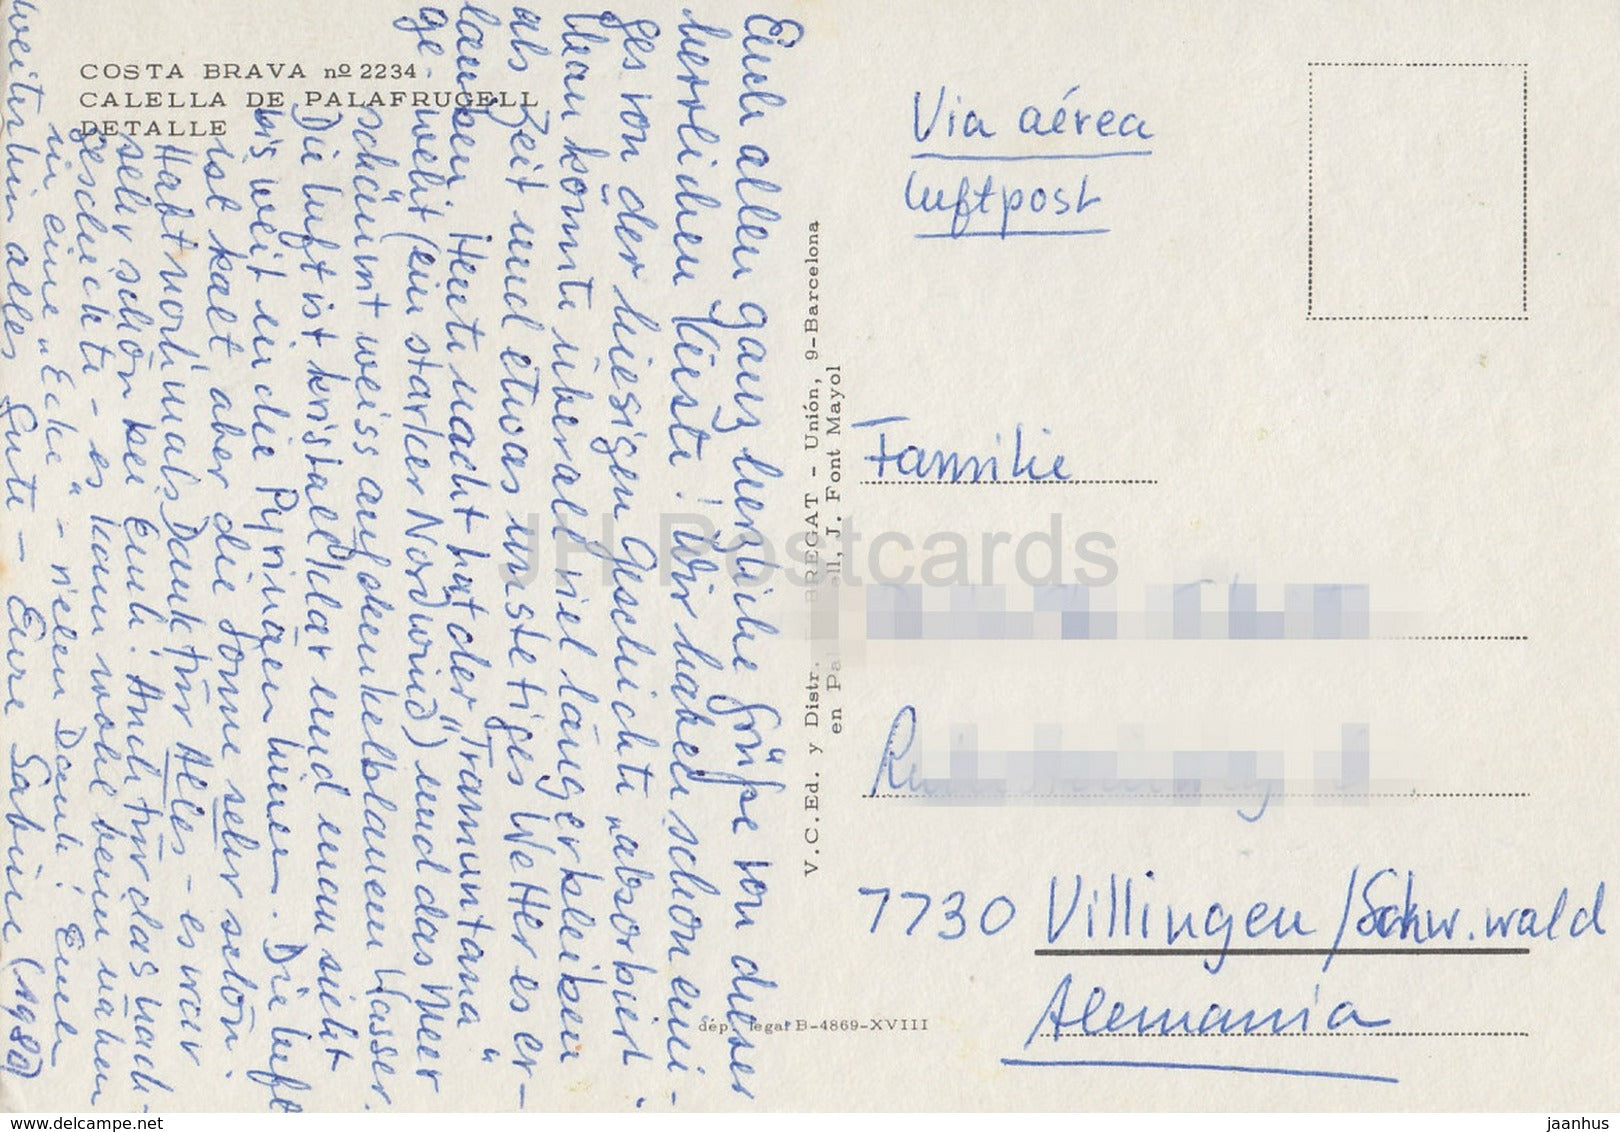 COSTA BRAVA nº 2234
CALELLA DE PALAFRUGELL
DETALLE
Euch allen ganz herzliche Grüße von dieser
herrlichen Küste! Wir haben schon eini-
ges von der hiesigen Geschichte „absorbiert".
Man könnte überall viel länger bleiben
als Zeit und etwas unstetiges Wetter es er-
lauben. Heute nacht hat der „Tramuntana"
ge-weht (ein starker Nordwind) und das Meer
schäumt weiss auf dunkelblauem Wasser.
Die Luft ist kristallklar und man sieht
bis weit in die Pyrinäen hinein. Die Luft
ist kalt aber die Sonne sehr schön.
Habt nochmals Dank für Alles - es war
sehr schön bei Euch. Auch für das nach-
geschickte - es kam wohl beim nähen
in eine „Ecke" - vielen Dank! Euch
weiterhin alles Gute - Eure Sabine (1980)
Via aérea
Luftpost
Familie
7730 Villingen/Schw.wald
Alemania
V.C.Ed. y Distr. BREGAT - Unión, 9-Barcelona
en Pal ll, J. Font Mayol
dép. legal B-4869-XVIII
JH Postcards
www.delcampe.net
jaanhus